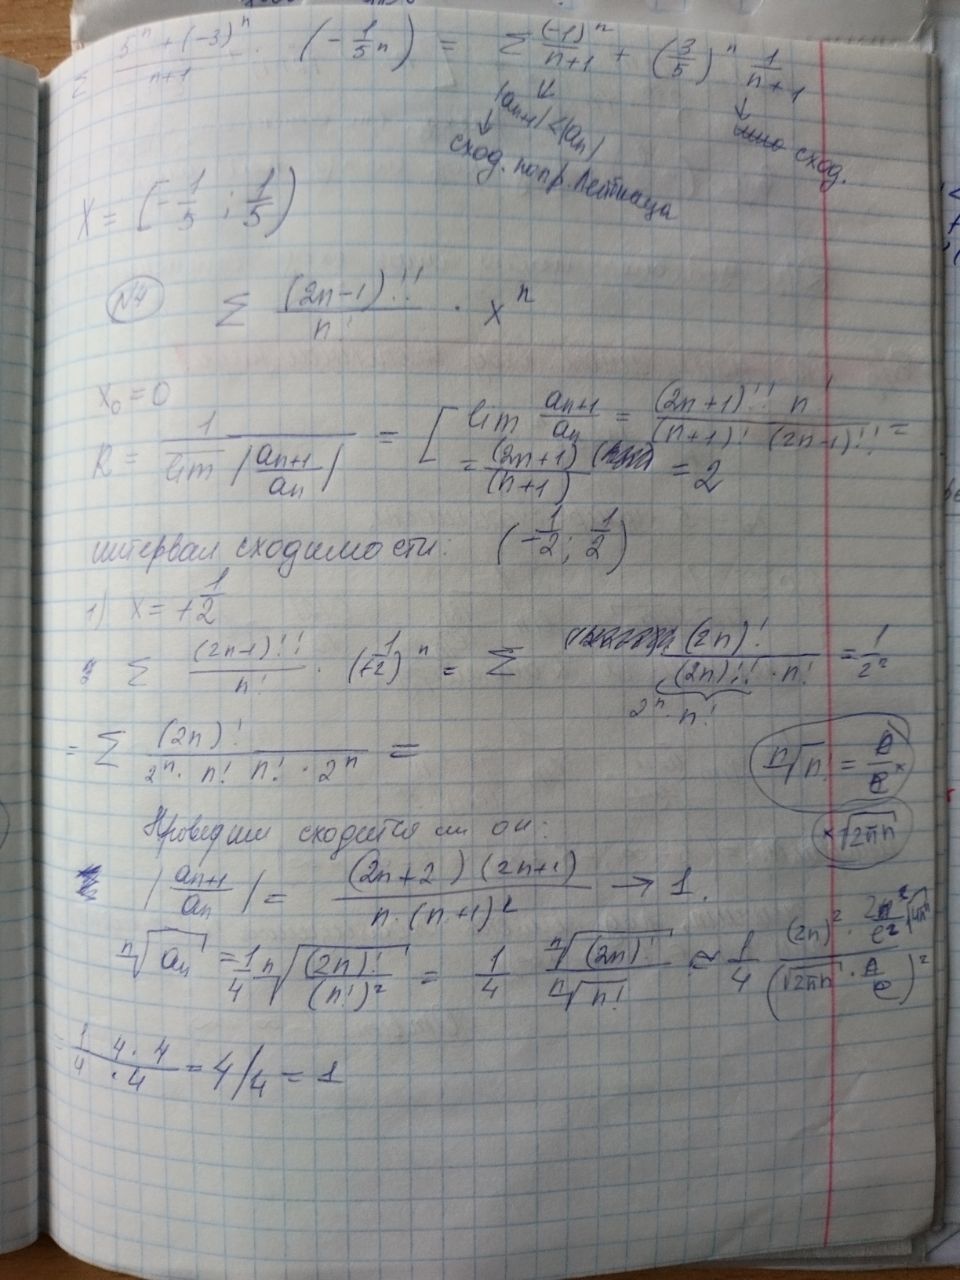 Σ (5ⁿ + (-3)ⁿ)/(n+1) · (-1/5ⁿ) = Σ (-1)ⁿ/(n+1) + (3/5)ⁿ 1/(n+1)
|aₙ₊₁| < |aₙ|
сход. по пр. Лейбница
сход.
X = [-1/5 ; 1/5)
N4 Σ (2n-1)!!/n! · xⁿ
x₀ = 0
R = 1/(lim |aₙ₊₁/aₙ|) = [ lim aₙ₊₁/aₙ = (2n+1)!! n!/((n+1)! (2n-1)!!) =
= (2n+1)/(n+1) = 2
интервал сходимости: (-1/2 ; 1/2)
1) x = +1/2
Σ (2n-1)!!/n! · (+1/2)ⁿ = Σ (2n)!/((2n)!! · n!) = 1/2ⁿ
2ⁿ · n!
= Σ (2n)!/(2ⁿ · n! n! · 2ⁿ) =
ⁿ√n! = n/e ×
× √2πn
Проверим сходится ли он:
|aₙ₊₁/aₙ| = (2n+2)(2n+1)/(n·(n+1)²) → 1.
ⁿ√aₙ = 1/4 ⁿ√((2n)!/(n!)²) = 1/4 ⁿ√(2n)!/ⁿ√n! ≈ 1/4 (2n)² · 2n²/e² √4πn/(√2πn · n/e)²
= 1/4 4·4/·4 = 4/4 = 1